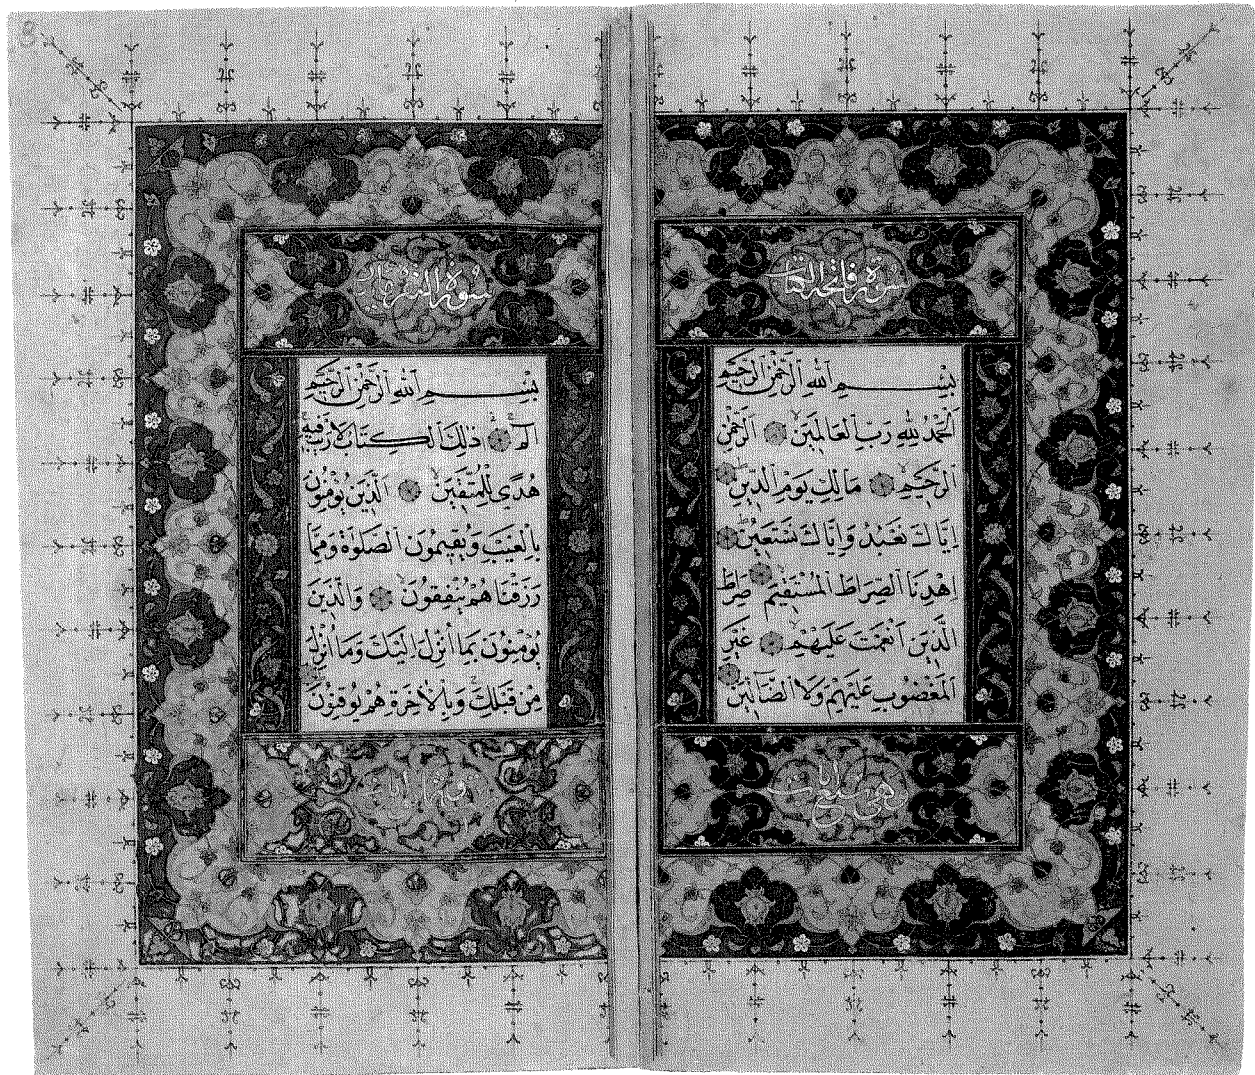 سورة فاتحة الكتاب
بِسْمِ اللهِ الرَّحْمٰنِ الرَّحِيمِ
اَلْحَمْدُ لِلّٰهِ رَبِّ الْعَالَمِينَ الرَّحْمٰنِ
الرَّحِيمِ مَالِكِ يَوْمِ الدِّينِ
اِيَّاكَ نَعْبُدُ وَاِيَّاكَ نَسْتَعِينُ
اِهْدِنَا الصِّرَاطَ الْمُسْتَقِيمَ صِرَاطَ
الَّذِينَ اَنْعَمْتَ عَلَيْهِمْ غَيْرِ
الْمَغْضُوبِ عَلَيْهِمْ وَلَا الضَّالِّينَ
وهي سبع ايات
سورة البقرة
بِسْمِ اللهِ الرَّحْمٰنِ الرَّحِيمِ
الم ذٰلِكَ الْكِتَابُ لَا رَيْبَ فِيهِ
هُدًى لِلْمُتَّقِينَ الَّذِينَ يُؤْمِنُونَ
بِالْغَيْبِ وَيُقِيمُونَ الصَّلٰوةَ وَمِمَّا
رَزَقْنَاهُمْ يُنْفِقُونَ وَالَّذِينَ
يُؤْمِنُونَ بِمَا اُنْزِلَ اِلَيْكَ وَمَا اُنْزِلَ
مِنْ قَبْلِكَ وَبِالْاٰخِرَةِ هُمْ يُوقِنُونَ